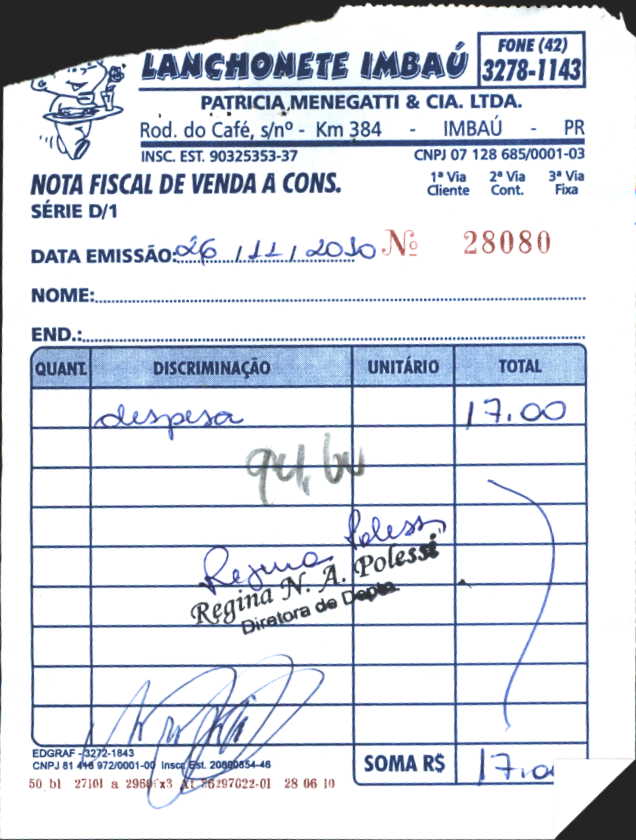 LANCHONETE IMBAÚ
FONE (42)
3278-1143
PATRICIA MENEGATTI & CIA. LTDA.
Rod. do Café, s/nº - Km 384 - IMBAÚ - PR
INSC. EST. 90325353-37 CNPJ 07 128 685/0001-03
NOTA FISCAL DE VENDA A CONS.
1ª Via Cliente 2ª Via Cont. 3ª Via Fixa
SÉRIE D/1
DATA EMISSÃO: 26/11/2010 Nº 28080
NOME:
END.:
QUANT. DISCRIMINAÇÃO UNITÁRIO TOTAL
despesa 17.00
Regina Polessi
Regina N. A. Polessi
Diretora de Depto.
EDGRAF - 3272-1843
CNPJ 81 416 972/0001-00 Inscr. Est.
SOMA R$ 17.0
50 bl 27101 a 28 06 10